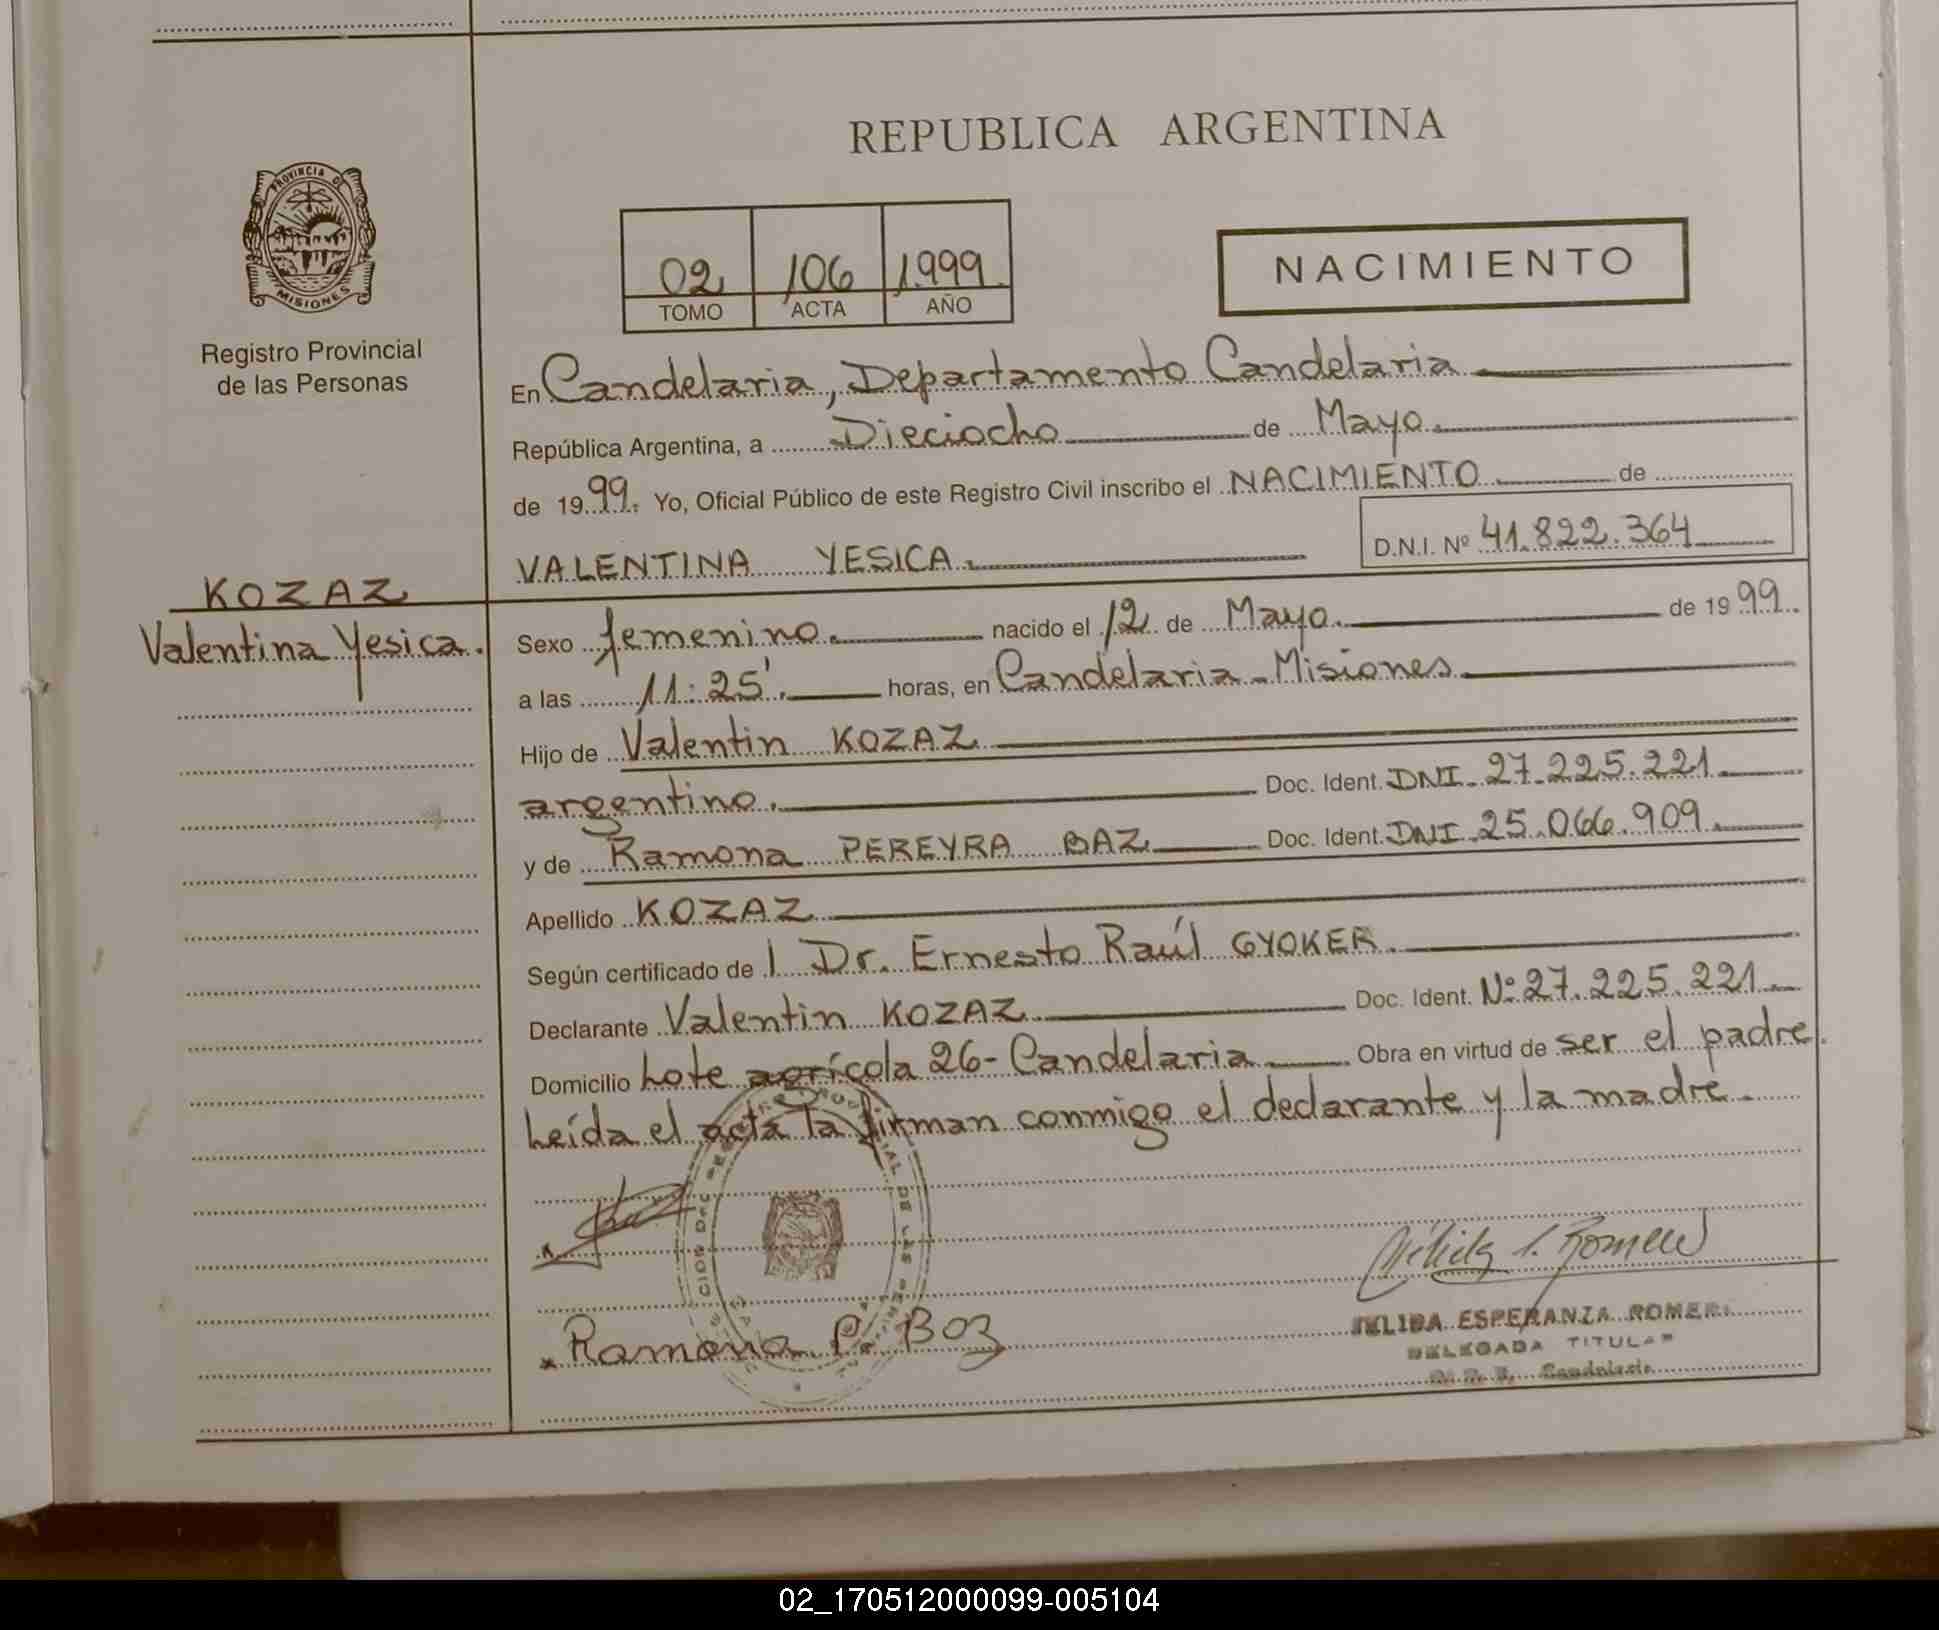 REPUBLICA ARGENTINA
PROVINCIA DE
MISIONES
Registro Provincial
de las Personas
02 106 1.999
TOMO ACTA AÑO
NACIMIENTO
En Candelaria, Departamento Candelaria
República Argentina, a Dieciocho de Mayo.
de 1999. Yo, Oficial Público de este Registro Civil inscribo el NACIMIENTO de
VALENTINA YESICA. D.N.I. Nº 41.822.364
KOZAZ
Valentina Yesica.
Sexo femenino. nacido el 12 de Mayo. de 1999.
a las 11:25'. horas, en Candelaria - Misiones
Hijo de Valentin KOZAZ
argentino. Doc. Ident. DNI. 27.225.221
y de Ramona PEREYRA BAZ Doc. Ident. DNI. 25.066.909.
Apellido KOZAZ
Según certificado de l Dr. Ernesto Raúl GYOKER.
Declarante Valentin KOZAZ Doc. Ident. Nº 27.225.221
Domicilio Lote agrícola 26 - Candelaria Obra en virtud de ser el padre.
Leída el acta la firman conmigo el declarante y la madre.
Ramona P. Boz
ESPERANZA ROMER
DELEGADA TITULAR
Candelaria
02_170512000099-005104